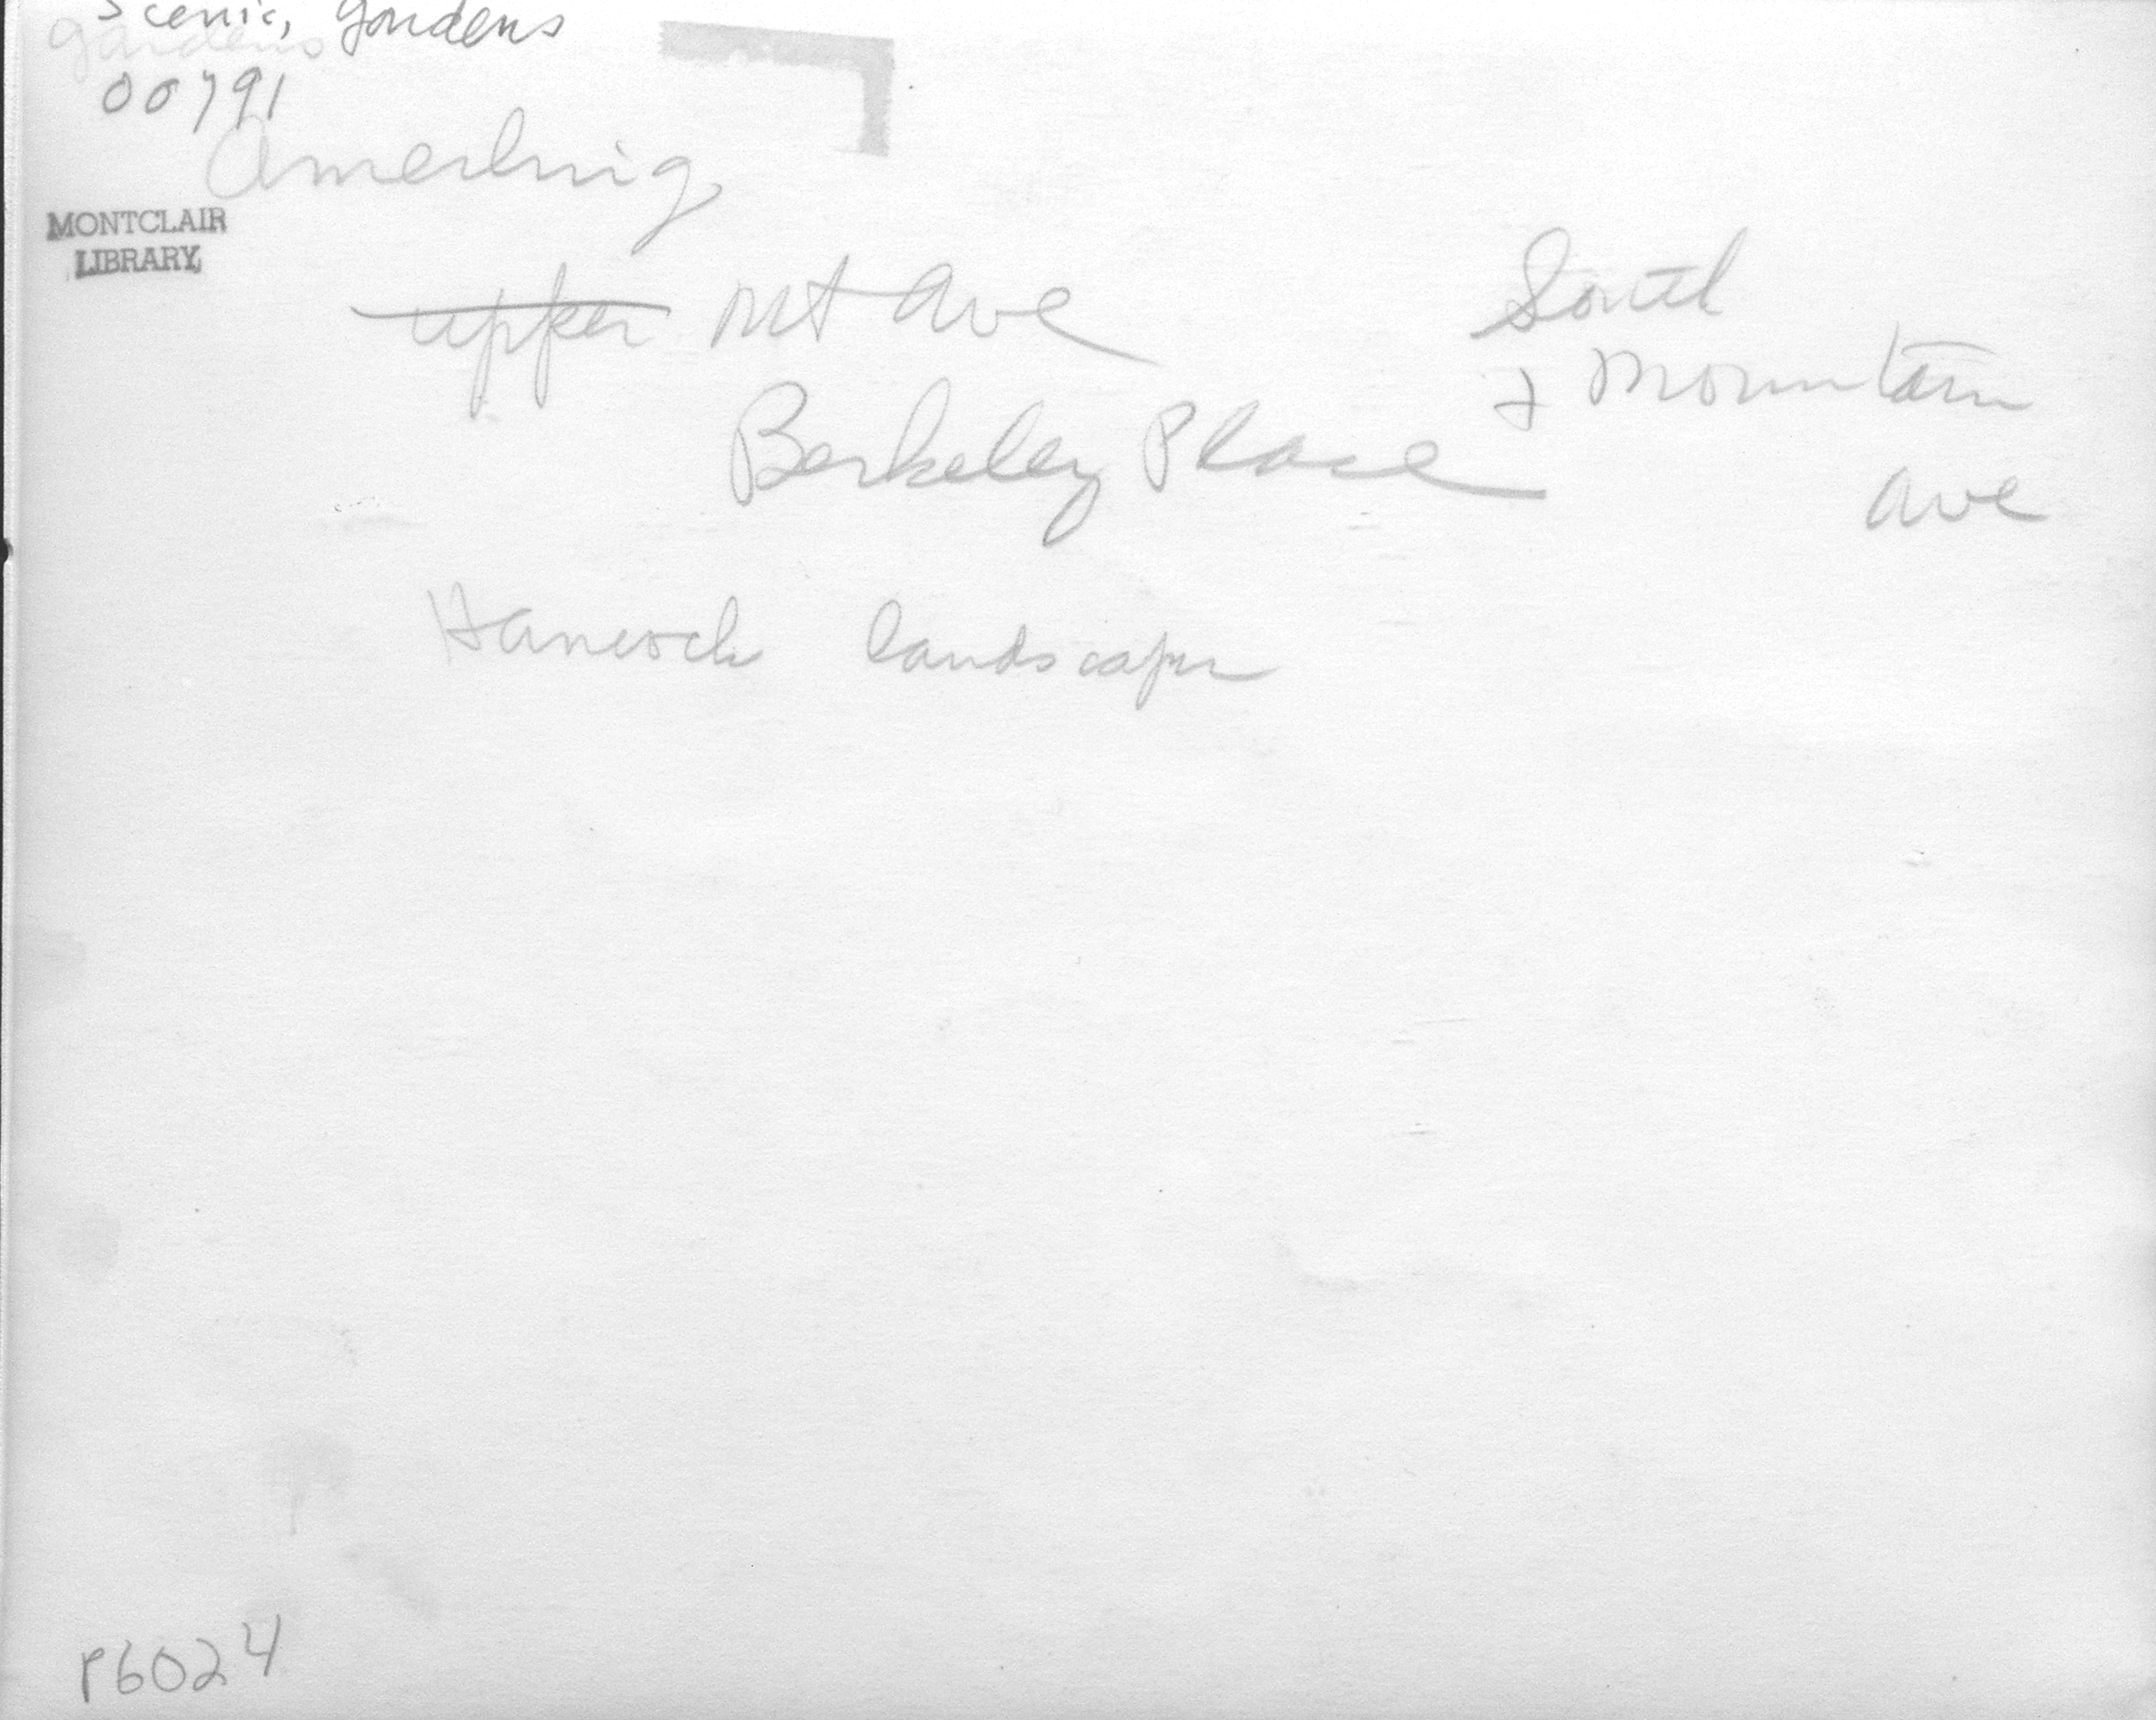 Scenic, gardens
gardens
00791
Amerling
MONTCLAIR
LIBRARY
upper Mt Ave
South
Berkeley Place & Mountain
Ave
Hancock landscaper
P6024